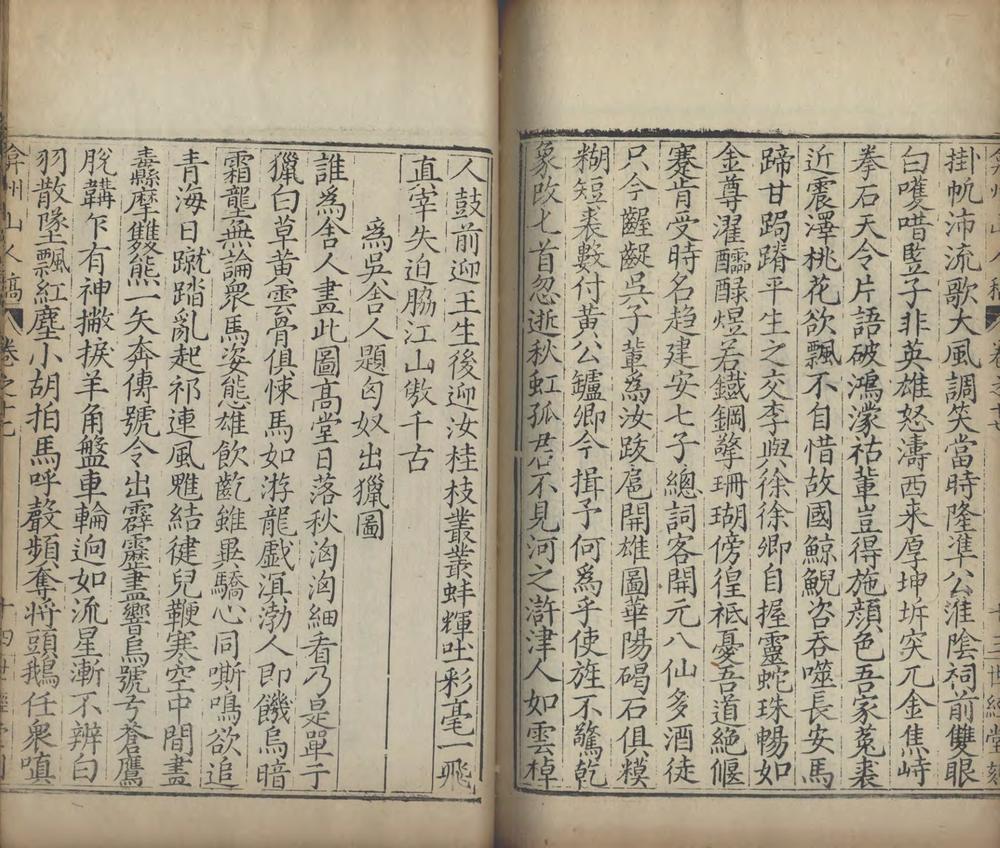 掛帆沛流歌大風調笑當時隆準公淮陰祠前雙眼
白嚄唶豎子非英雄怒濤西来厚坤坼突兀金焦峙
拳石天令片語破鴻濛祜輩豈得施顔色吾家菟裘
近震澤桃花欲飄不自惜故國鯨鯢咨吞噬長安馬
蹄甘跼蹐平生之交李與徐徐卿自握靈蛇珠暢如
金尊濯醽醁熀若鐵鋼擎珊瑚傍徨袛憂吾道絶偃
蹇肯受時名趋建安七子總詞客開元八仙多酒徒
只今齷齪吳子輩為汝跋扈開雄圖華陽碣石俱糢
糊短裘數付黃公鑪卿今揖予何為乎使旌不驚乾
象改匕首忽逝秋虹孤君不見河之滸津人如雲棹
人鼓前迎王生後迎汝桂枝叢叢蚌輝吐彩毫一飛
直宰失迫脇江山傲千古
為吳舍人題匈奴出獵圖
誰為舍人畫此圖高堂日落秋洶洶細看乃是單于
獵白草黃雲骨俱悚馬如游龍戯滇渤人即饑烏暗
霜壟無論眾馬姿態雄飲齕雖異驕心同嘶鳴欲追
青海日蹴踏亂起祁連風魋結健兒鞭寒空中間畫
纛摩雙熊一矢奔傳號令出霹靂晝響烏號弓蒼鷹
脫韝乍有神撇捩羊角盤車輪逈如流星漸不辨白
羽散墜飄紅塵小胡拍馬呼聲頻奪將頭鵝任衆嗔
弇州山人稿 卷之十九 十四 世經堂刻